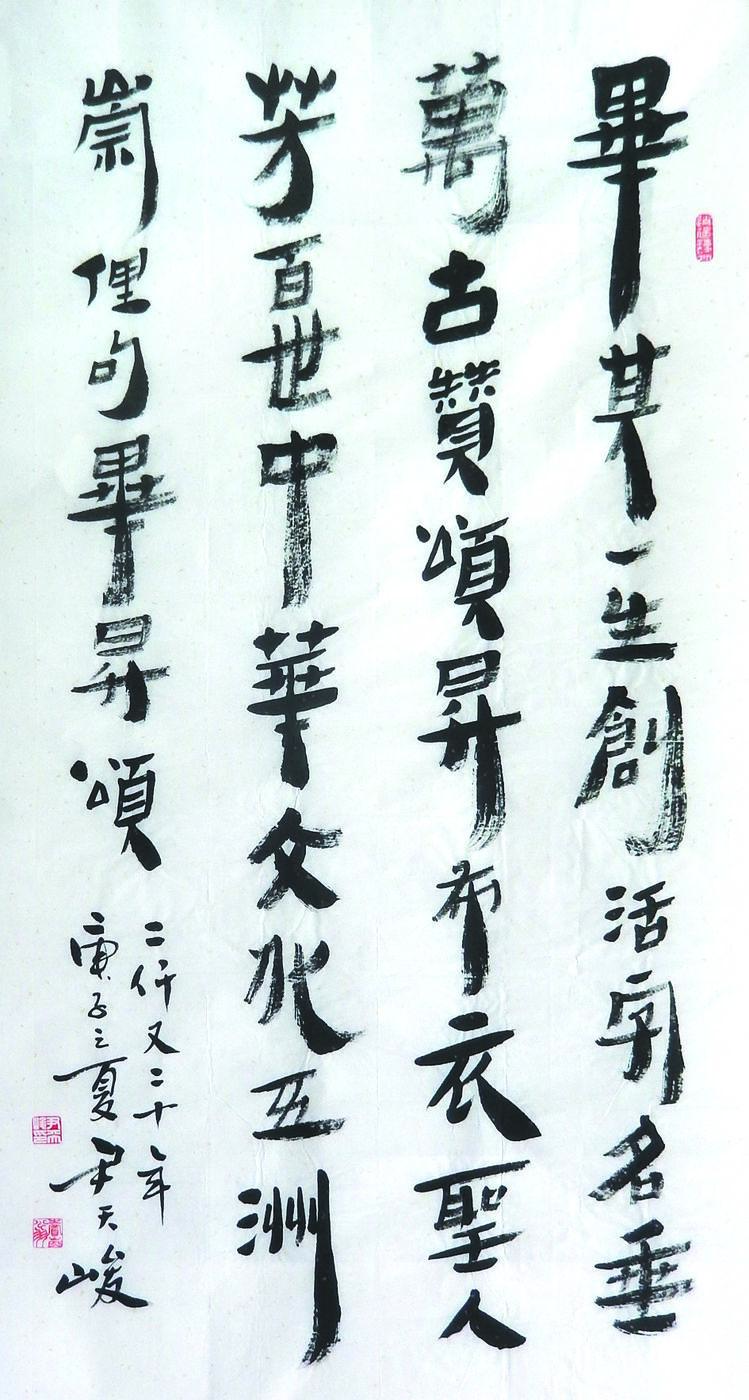 畢某一生創活字名垂
萬古贊頌昇布衣聖人
芳百世中華文化五洲
崇俚句畢昇頌
二仟又二十年
庚子之夏尹天峻